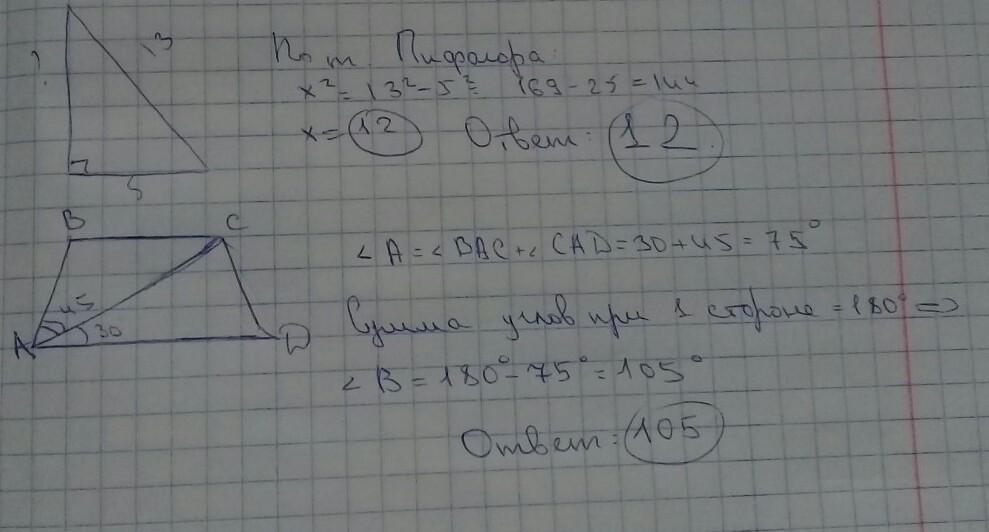 ?
13
5
По т. Пифагора:
x² = 13² - 5² = 169 - 25 = 144
x = 12 Ответ: 12.
B C
45
30
A D
∠A = ∠BAC + ∠CAD = 30 + 45 = 75°
Сумма углов при 1 стороне = 180° =>
∠B = 180° - 75° = 105°
Ответ: 105